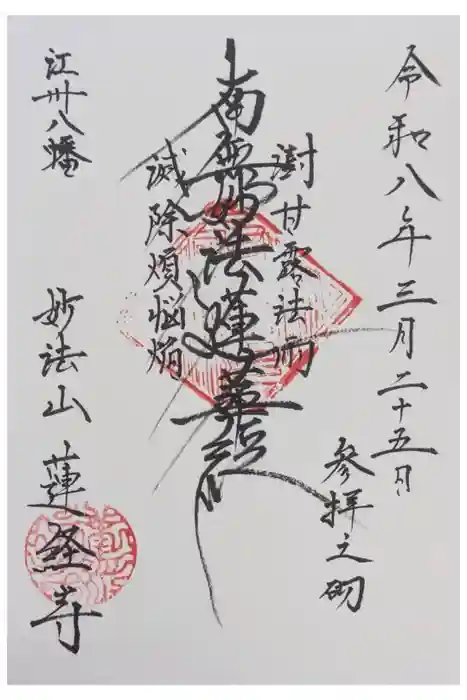 令和八年三月二十五日
参拝之砌
澍甘露法雨
南無妙法蓮華経
滅除煩悩焔
江州八幡
妙法山 蓮経寺